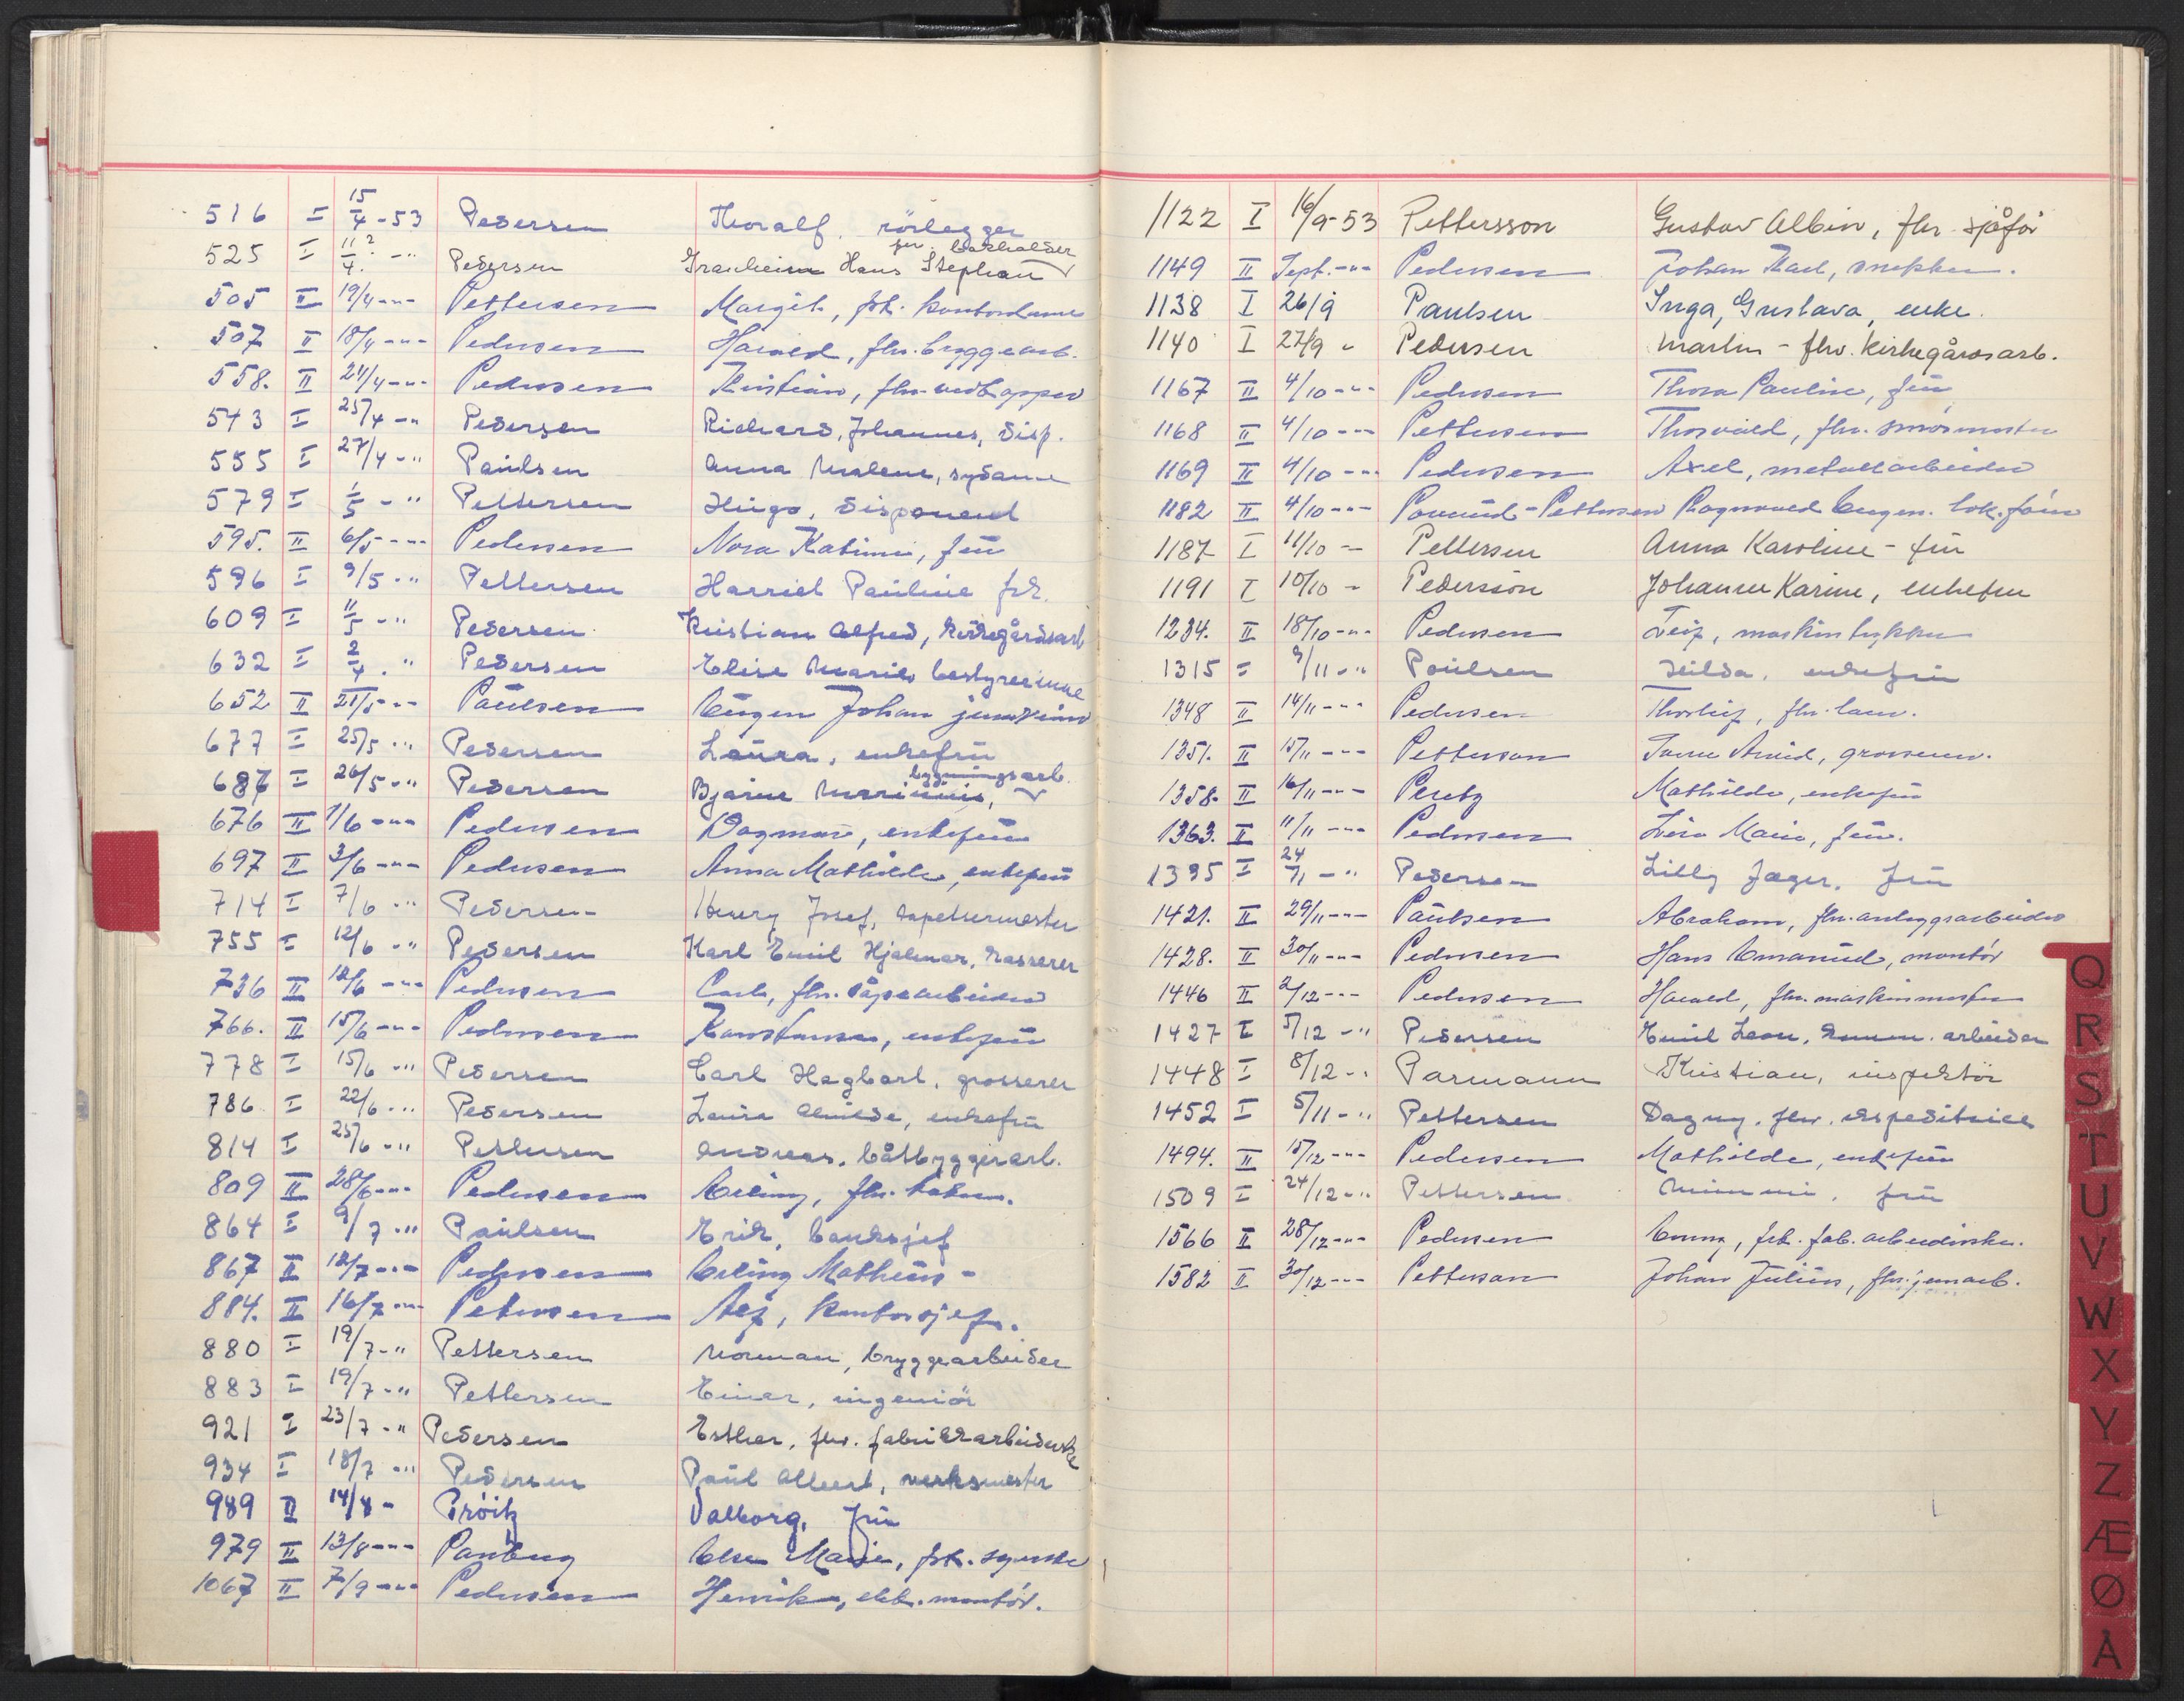 516 I 15/4-53 Pedersen Thoralf. rörlegger
525 I 11/4? -" Pedersen Hans Stephan fhv. bokholder
505 II 19/4-"- Pettersen Margit, frk. kontordame
507 II 18/4-"- Pedersen Harald, fhv. bryggearb.
558. II 24/4-"- Pedersen Kristian, fhv. vedkapper
543 I 25/4 -" Pedersen Richard, Johannes, disp.
555 I 27/4 -" Paulsen Anna Malene, sydame
579 I 1/5 -" Pettersen Hugo, disponent
595. II 6/5-"- Pedersen Nora Katrine, fru
596 I 9/5 -" Pettersen Harriet Pauline frk.
609 I 11/5 -" Pedersen Kristian Alfred, kirkegårdsarb
632 I 2/4 " Pedersen Elise Marie bestyrerinne
652 II 21/5-"- Paulsen Eugen Johan
677 I 25/5 -" Pedersen Laura, enkefru
687 I 26/5 -" Pedersen Bjarne bygningsarb.
676 II 1/6-"- Pedersen Dagmar, enkefru
697 II 3/6-"- Pedersen Anna Mathilde, enkefru
714 I 7/6 -" Pedersen Henry Josef, tapetsermester
755 I 12/6 -" Pedersen Karl Emil Hjalmar, kasserer
736 II 12/6 -"- Pedersen Carl, fhv. såpearbeider
766. II 15/6-"- Pedersen Konstanse, enkefru
778 I 15/6 -" Pedersen Carl Hagbart, grosserer
786 I 22/6 -" Pedersen Laura Amilde, enkefru
814 I 25/6 -" Pettersen Andreas, båtbyggerarb.
809 II 28/6-"- Pedersen Erling, fhv.
864 I 9/7 -" Paulsen Erik, banksjef
867 II 12/7-"- Pedersen Erling Matheus -
884. II 16/7-"- Petersen Alf, kontorsjef.
880 I 19/7-" Pettersen Norman, bryggearbeider
883 I 19/7-" Pettersen Einar, ingeniör
921 I 23/7 -" Pedersen Esther, fhv. fabrikkarbeiderske
934 I 18/7 -" Pedersen Paul Albert, verksmester
989 II 14/8 - Pröitz Valborg, fru
979 II 13/8-"- Panberg Else Marie, frk. syerske
1067 II 7/9-"- Pedersen Henrik, elek. montör.
1122 I 16/9-53 Pettersson Gustav Albin, fhv. sjåför
1149 II Sept.-"- Pedersen Johan Karl, snekker.
1138 I 26/9 Paulsen Inga, Gustava, enke.
1140 I 27/9 " Pedersen Martin - fhv. kirkegårdsarb.
1167 II 4/10 -"- Pedersen Thora Pauline, fru
1168 II 4/10 -"- Pettersen Thorvald, fhv.
1169 II 4/10 -"- Pedersen Axel, metallarbeider
1182 II 4/10-"- Pettersen Ragnvald Eugen. lok.förer
1187 I 11/10 - Pettersen Anna Karoline - fru
1191 I 10/10 - Pedersson Johanne Karine, enkefru
1234. II 18/10-"- Pedersen Leif, maskintrykker
1315 I 9/11 -" Paulsen Hilda. enkefru
1348 II 14/11 -"- Pedersen Thorleif, fhv.
1351. II 15/11 -"- Petterson grosserer.
1358. II 16/11-"- Peretz Mathilde, enkefru
1363. II 11/11 -"- Pedersen Marie, fru.
1395 I 24/11 -" Pedersen Lilly Jæger. fru
1421. II 29/11-"- Paulsen Abraham, fhv. anleggsarbeider
1428. II 30/11-"- Pedersen Hans Emanuel, montör
1446 II 2/12-"- Pedersen Harald, fhv. maskinmester
1427 I 5/12 -" Pedersen Emil Leon, komm. arbeider
1448 I 8/12 -" Parmann Kristian, inspektör
1452 I 5/11 -" Pettersen Dagny. fhv. ekspeditrice
1494. II 15/12-"- Pedersen Mathilde, enkefru
1509 I 24/12 -" Pettersen Mimmi. fru
1566 II 28/12-"- Pedersen Emmy, frk. fab. arbeiderske.
1582 II 30/12-"- Petterson Johan Julius, fhv. jernarb.
Q
R
S
T
U
V
W
X
Y
Z
Æ
Ø
A